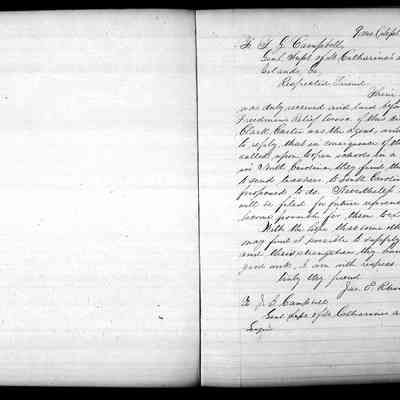 9mo (Sept
T. G. Campbell,
Genl Supt of St. Catharine's
Islands, Ga.
Respected Friend
Thine
was duly received and laid before
Freedmen's Relief
Clark Carter was the agent, and
to reply, that in consequence of the
called upon to open schools in a
in North Carolina, they find the
to send teachers to South Carolina
proposed to do. Nevertheless
will be filed for future reference
become possible for them to
With the hope that some other
may find it possible to supply
and thus strengthen thy hands
good work, I am with respect
truly thy friend
Jas. E. Rhoads
To T. G. Campbell
Genl Supt of St. Catharines